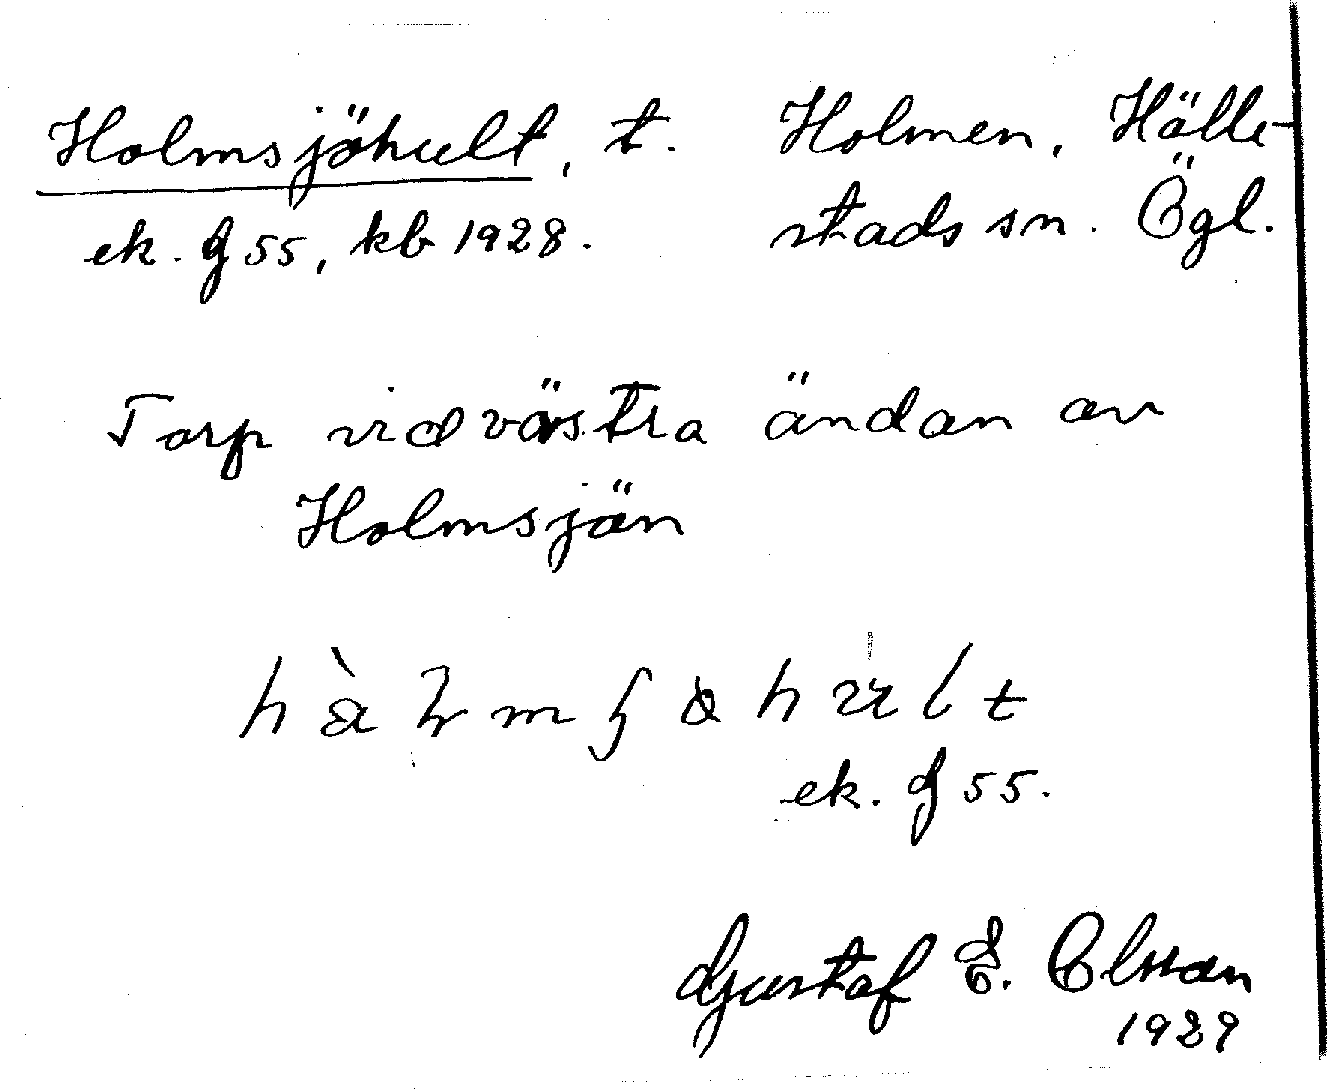 Holmsjöhult, t. Holmen, Hälle-
ek. J 55, kb 1928. stads sn. Ögl.
Torp vid västra ändan av
Holmsjön
ek. J 55.
Gustaf E. Olsson
1929